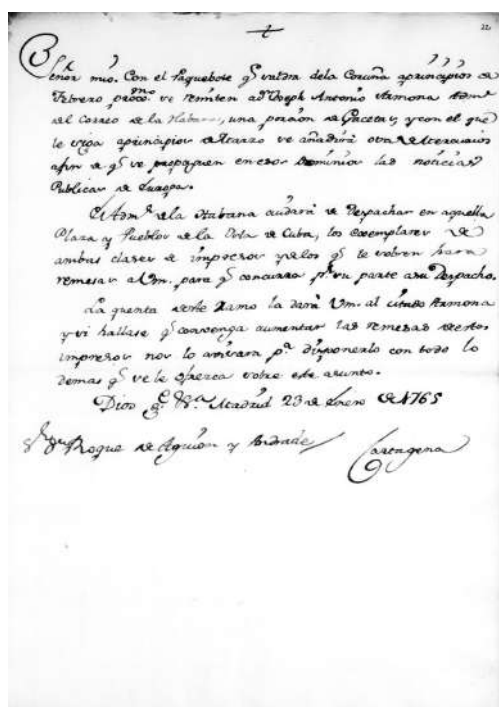 22
Señor mio. Con el Paquebote q.e saldra dela Coruña aprincipios de
Febrero prox.mo se remiten a d.n Joseph Antonio Armona Adm.or
del Correo de la Habana, una porcion de Gacetas, y con el que
le siga aprincipios de Marzo se añadirá otra de Mercurios
afin de q.e se propaguen en esos Dominios las noticias
Publicas de Europa.
El Adm.or dela Habana cuidará de Despachar en aquella
Plaza y Pueblos de la Ysla de Cuba, los exemplares de
ambas clases de impresos y delos q.e le sobren hara
remesas a Vm. para q.e concurra p.r su parte a su Despacho.
La quenta deste Ramo la dará Vm. al citado Armona
y si hallase q.e convenga aumentar las remesas destos
impresos nos lo avisara p.a disponerlo con todo lo
demas q.e se le ofrezca sobre este asunto.
Dios g.e Madrid 23 de Enero de 1765
S.r d.n Roque de Aguion y Andrade Cartagena